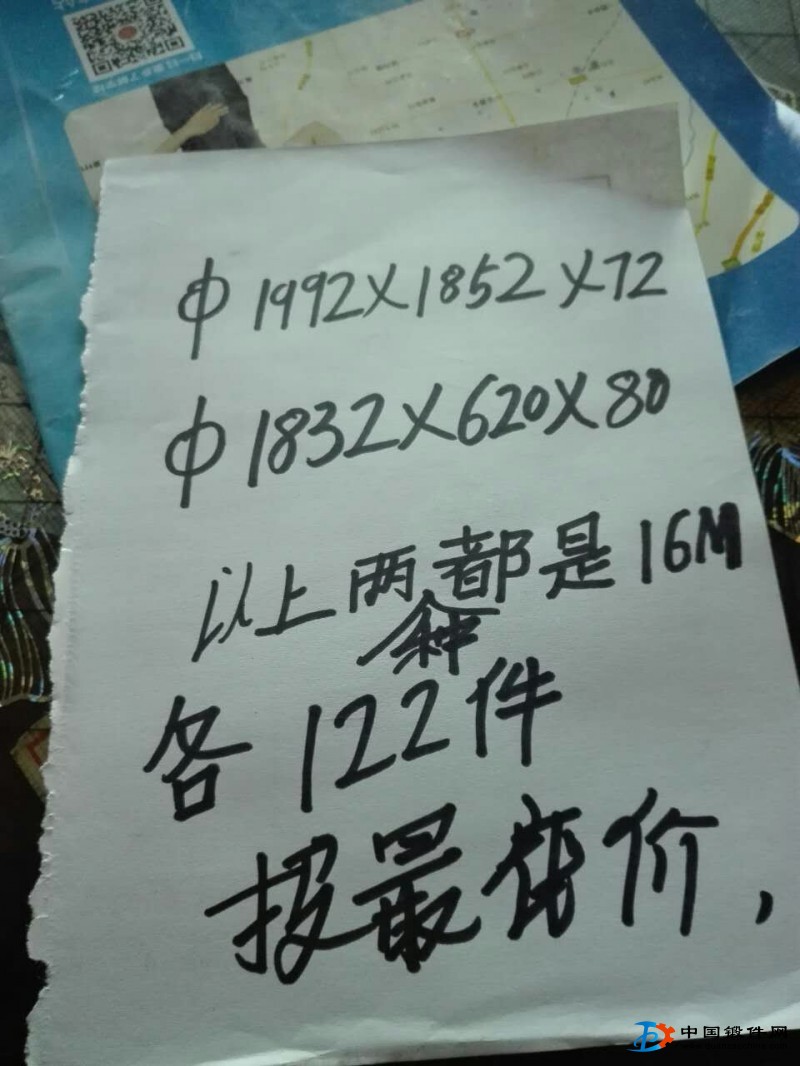 φ1992X1852X72
φ1832X620X80
以上两种都是16M
各122件
报最底价,
中国锻件网